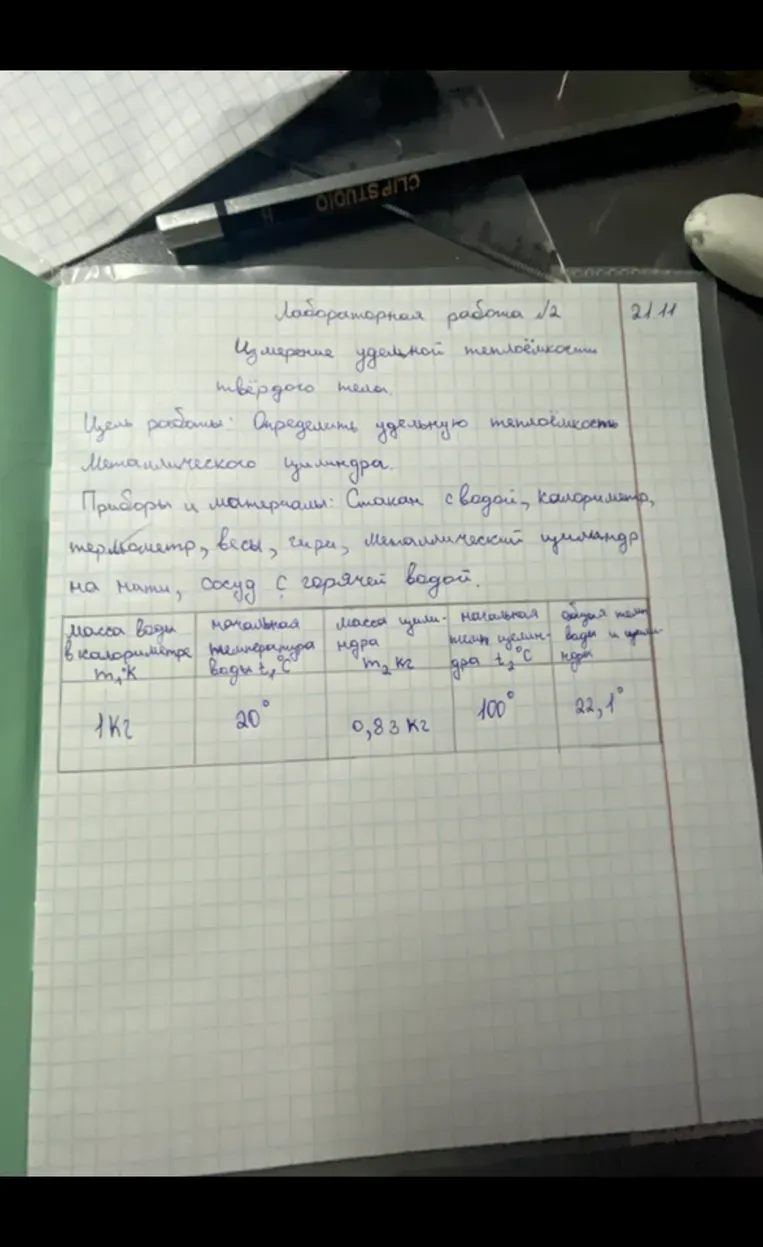 CLIPSTUDIO
H
Лабораторная работа №2 21.11
Измерение удельной теплоёмкости
твёрдого тела.
Цель работы: Определить удельную теплоёмкость
Металлического цилиндра.
Приборы и материалы: Стакан с водой, калориметр,
термометр, весы, гири, металлический цилиндр
на нити, сосуд с горячей водой.
масса воды в калориметре m₁ °К
начальная температура воды t₁ °C
масса цилиндра m₂ кг
начальная темп цилиндра t₂ °C
общая темп воды и цилиндры
1 Кг 20° 0,83 кг 100° 22,1°